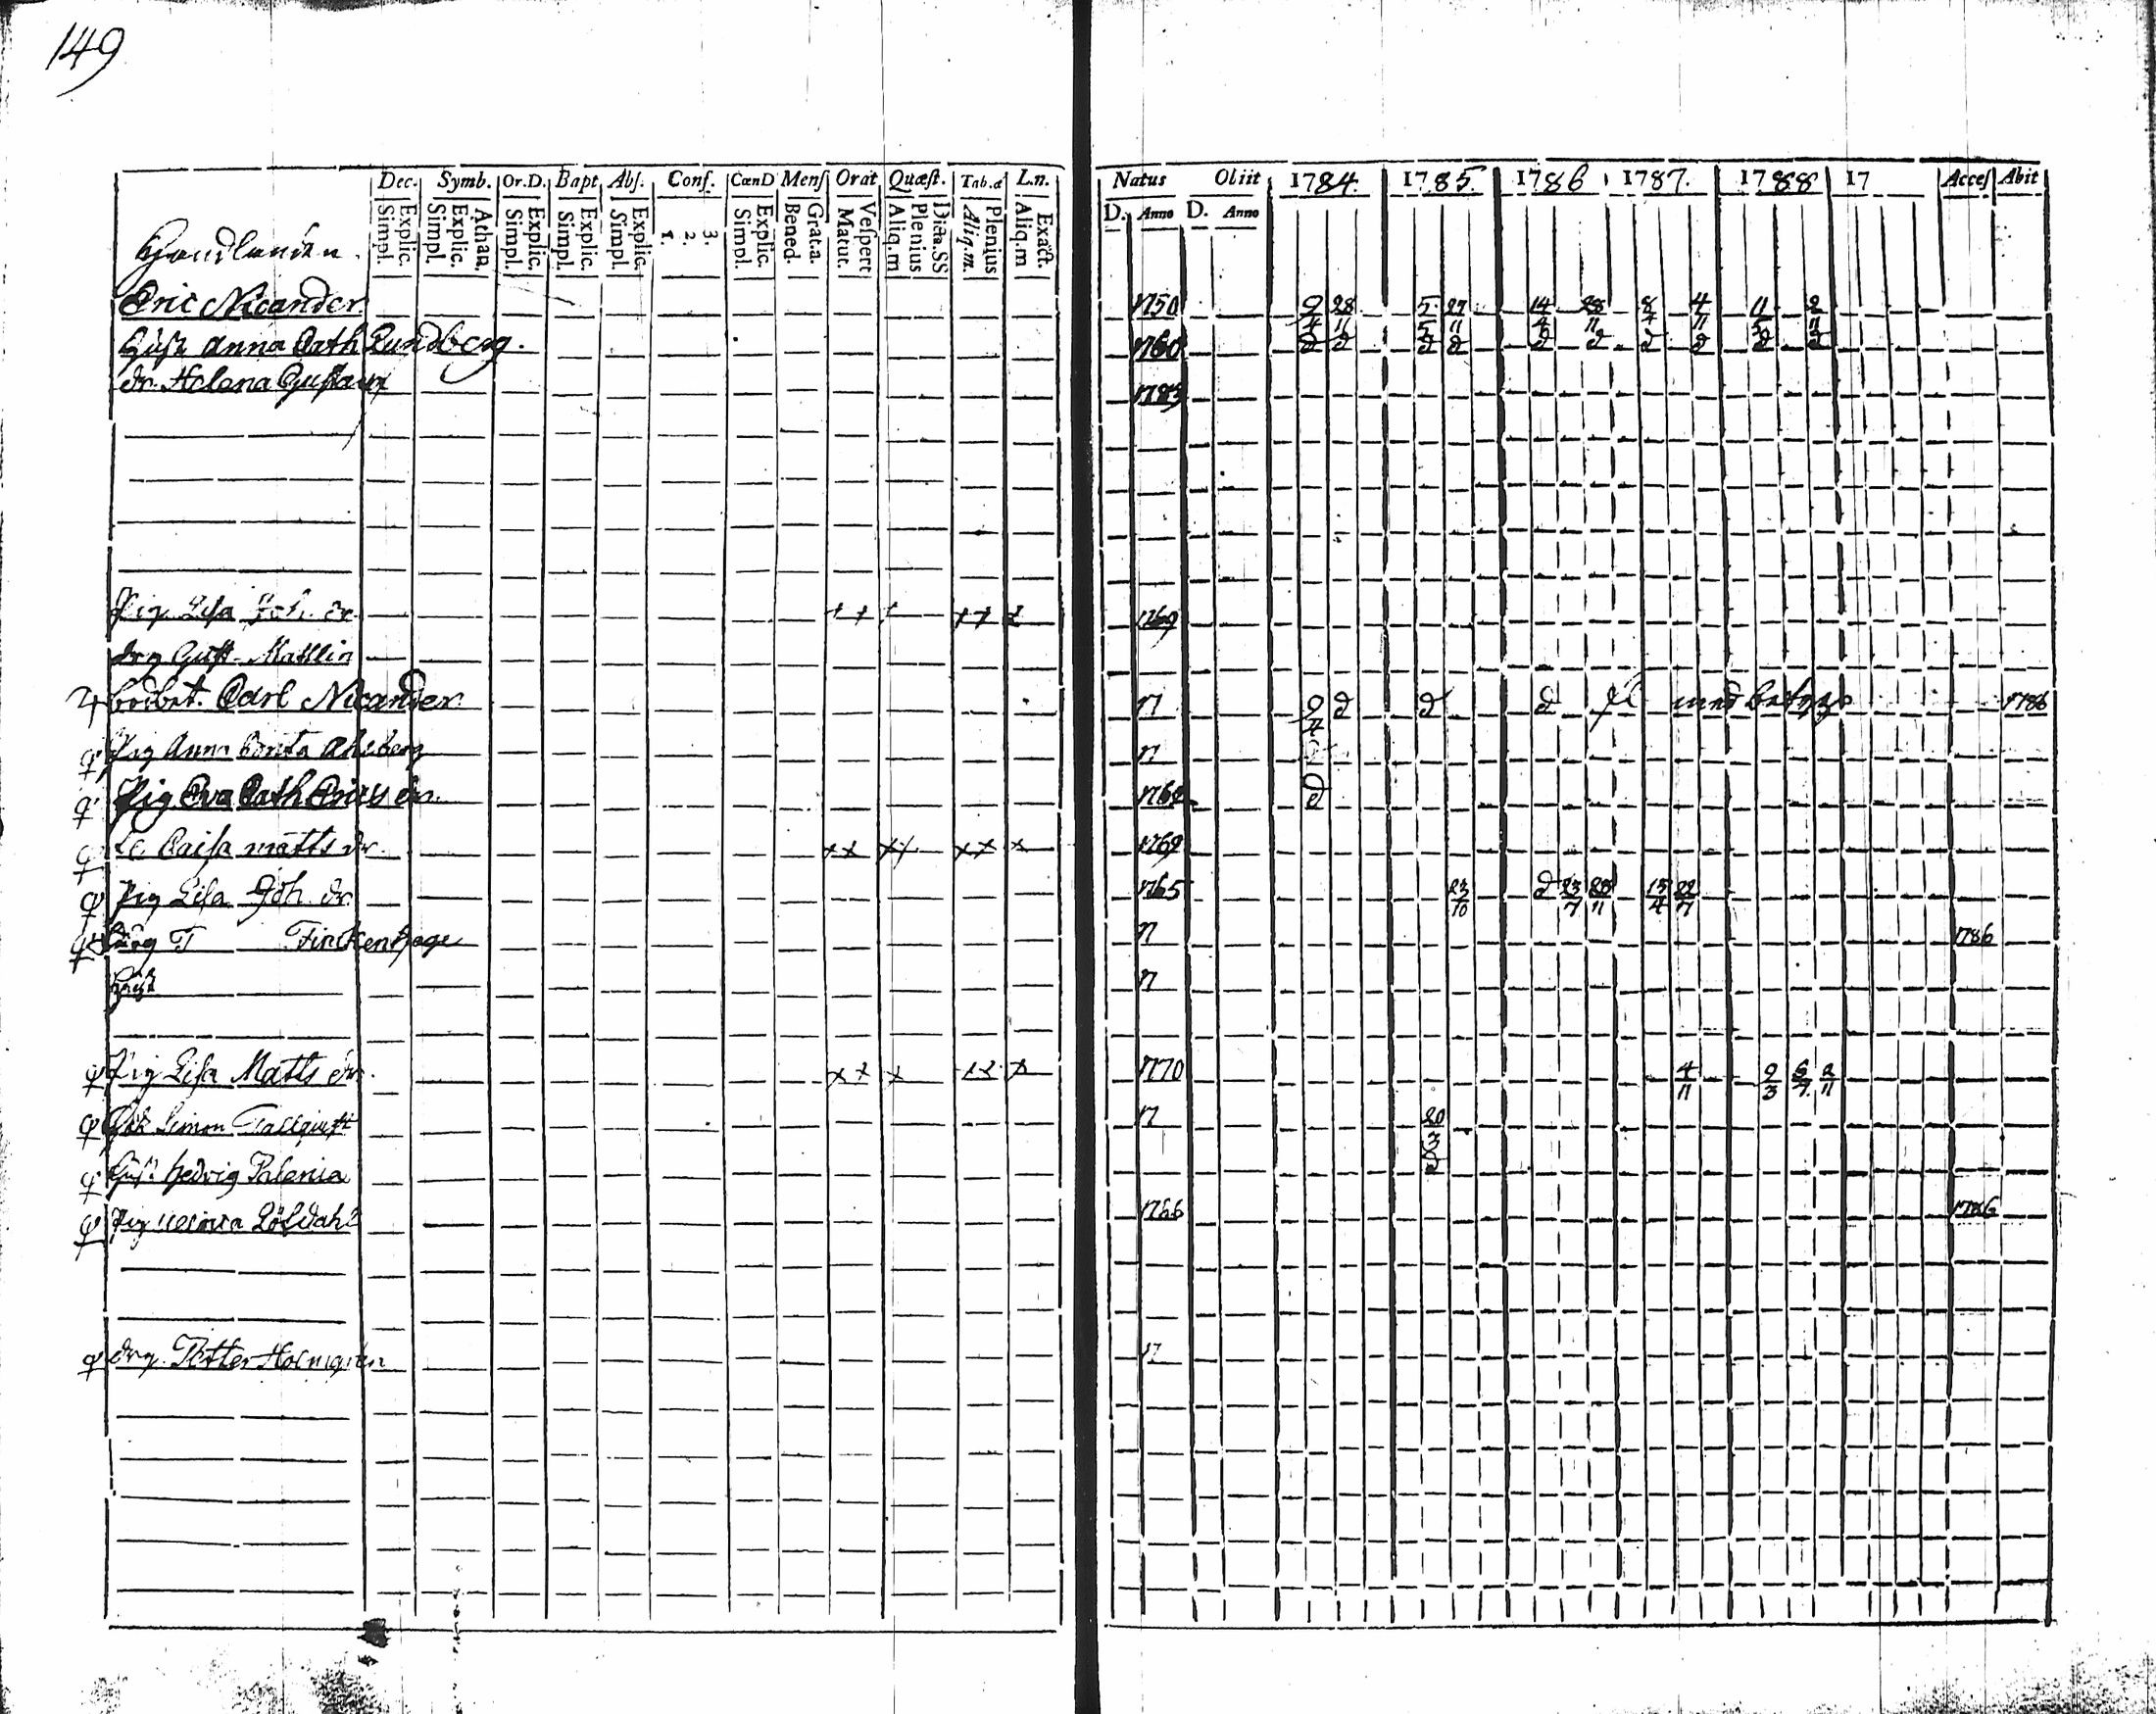 149
Dec. Symb. Or.D. Bapt Abſ. Conſ. CœnD Menſ Orat Quæſt. Tab.æ L.n. Natus Obiit 1784. 1785. 1786 1787. 1788 17 Acceſ Abit
Explic. Simpl. Athan. Explic. Simpl. Explic. Simpl. Explic. Simpl. Explic. Simpl. 3. 2. 1. Explic. Simpl. Grat.a. Bened. Veſpert Matut. Dicta.SS Plenius Aliq.m Plenius Aliq.m. Exact. Aliq.m D. Anno D. Anno
Handlanden.
Eric Nicander 1750 9/4 28/11 5/5 27/11 14/4 28/11 8/4 4/11 11/5 2/11
Huſt Anna Cath Lundberg. 1760 d d d d d d d d d d
dr. Helena Guſtava 1783
Pig Liſa Joh. dr + + + + + + 1769
drg Guſt. Mattlin
bodbet. Carl Nicander 17 9/4 d d d med betyg 1786
Pig Anna Benta Ahlberg 17
Pig Eva Cath Erics dr. 1762 d
Caiſa Matts dr. x x x x x x x 1769
Pig Liſa Joh. dr 1765 23/10 d 23/7 28/11 15/4 22/7
T Finckenhage 17 1786
Huſt 17
Pig Liſa Matts dr. x x x x x x 1770 4/11 9/3 6/7 2/11
Simon Tallquiſt 17 20/3
Huſt. Hedvig Palenia
Pig Löfdahl 1766 1786
drg. Petter Holmgren 17